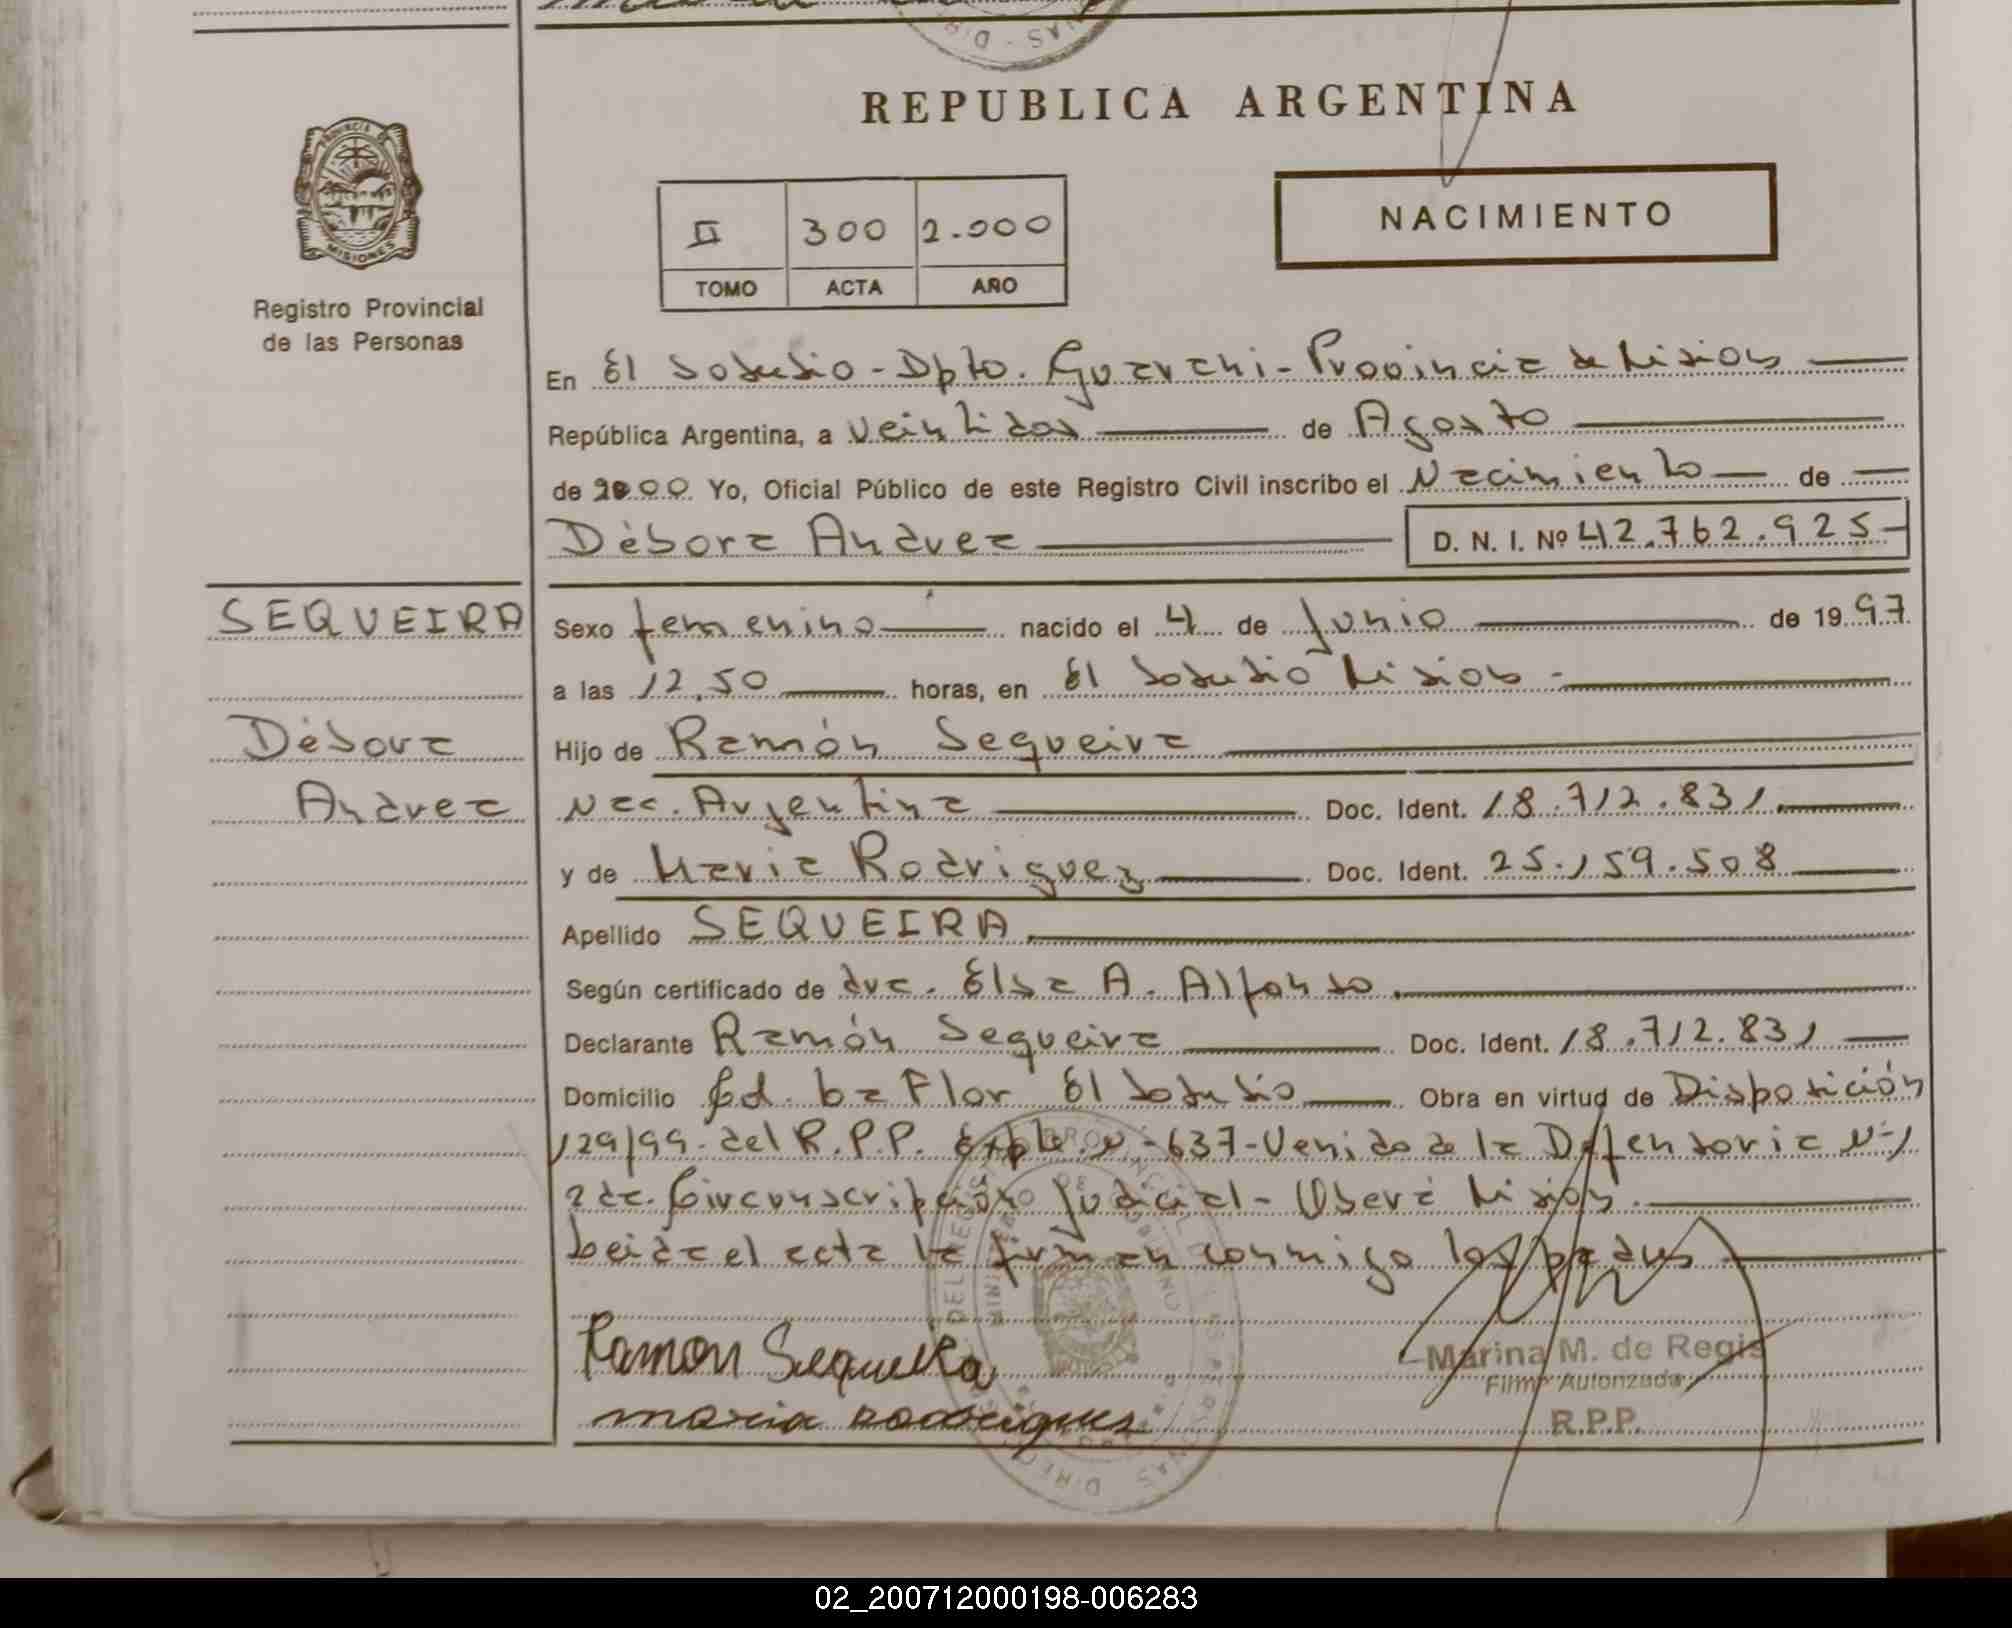 REPUBLICA ARGENTINA
PROVINCIA DE
MISIONES
Registro Provincial
de las Personas
II 300 2.000
TOMO ACTA AÑO
NACIMIENTO
En El Soberbio - Dpto. Guarani - Provincia de Misiones
República Argentina, a Veintidos de Agosto
de 2000 Yo, Oficial Público de este Registro Civil inscribo el Nacimiento de
Débora Andrea D. N. I. Nº 42.762.925
SEQUEIRA
Débora
Andrea
Sexo femenino nacido el 4 de Junio de 1997
a las 12,50 horas, en El Soberbio Misiones
Hijo de Ramón Sequeira
Nac. Argentina Doc. Ident. 18.712.831
y de Maria Rodriguez Doc. Ident. 25.159.508
Apellido SEQUEIRA
Según certificado de dra. Elsa A. Alfonso
Declarante Ramón Sequeira Doc. Ident. 18.712.831
Domicilio Cd. La Flor El Soberbio Obra en virtud de Disposición
129/99 - del R.P.P. Expte. Nº 637 - Venido de la Defensoria Nº 1
2da. Circunscripción Judicial - Oberá Misiones.
Leida el acta la firman conmigo los padres
Ramon Sequeira
maria rodrigues
Marina M. de Regis
Firma Autorizada
R.P.P.
02_200712000198-006283